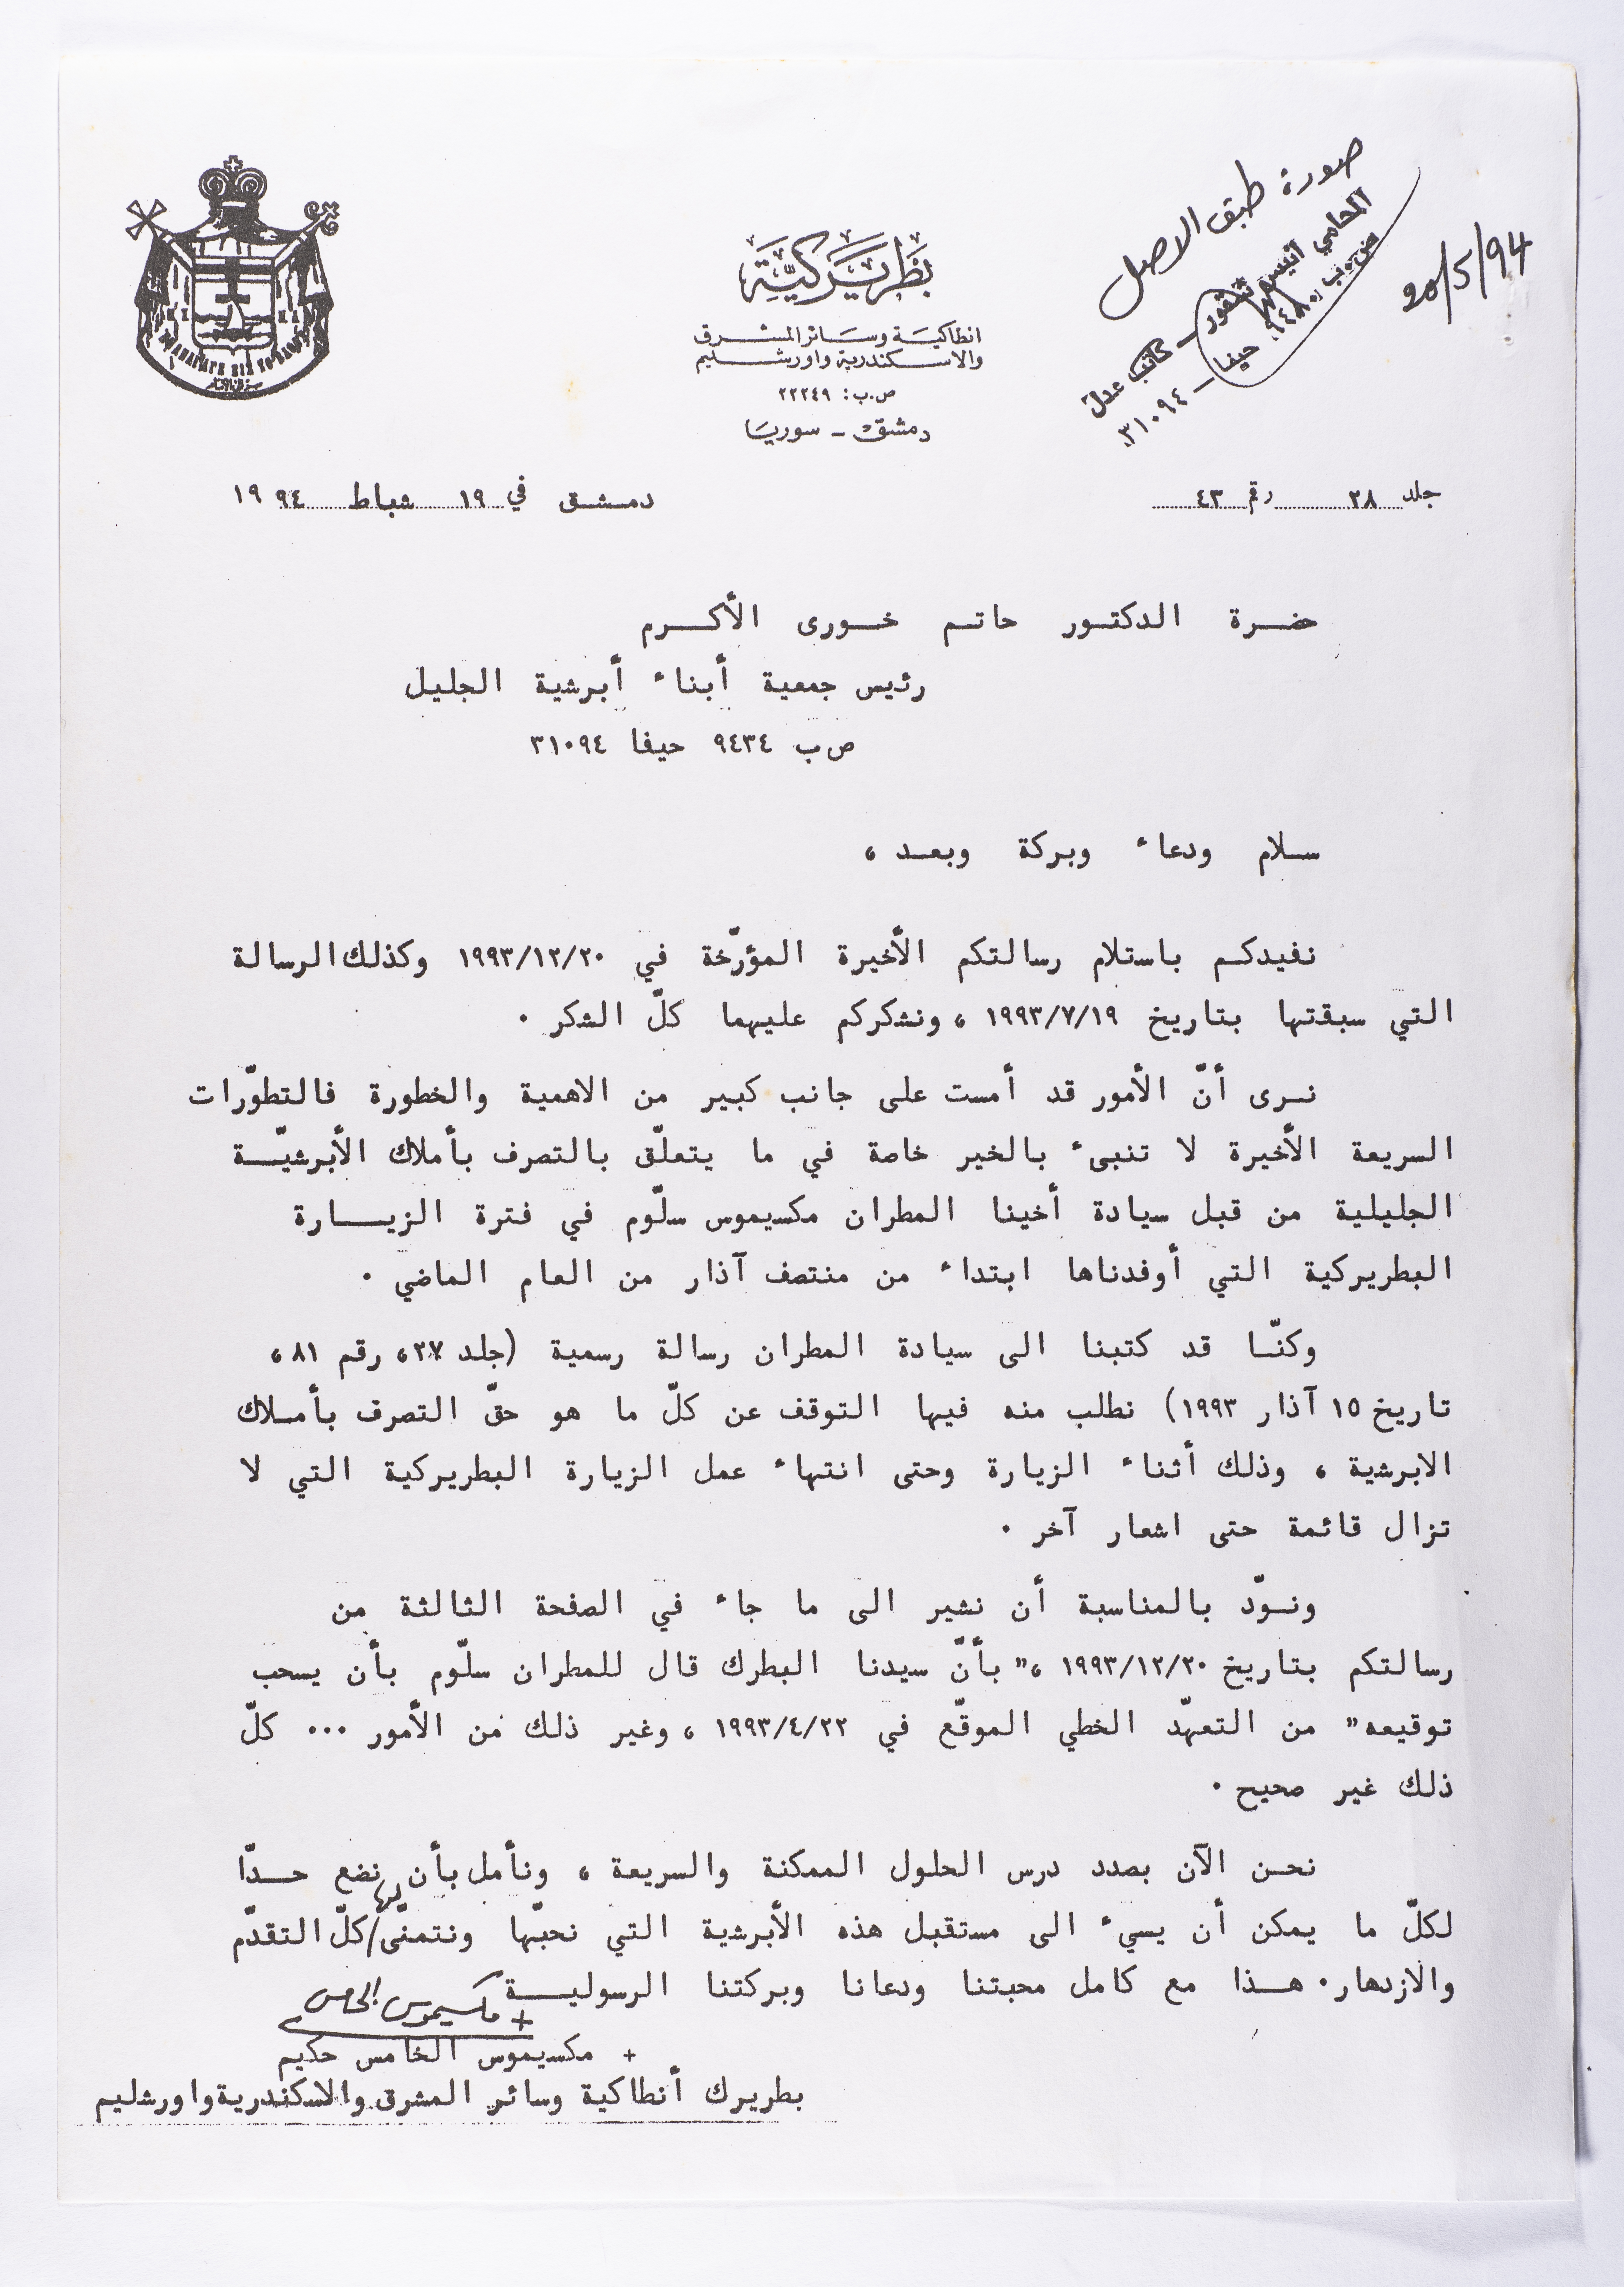 صورة طبق الاصل
المحامي انيس شقور - كاتب عدل
ص.ب. ٩٤٨٠ حيفا - ٣١٠٩٤
20/5/94
بطريركيّة
انطاكية وسائر المشرق
والاسكندرية واورشليم
ص.ب: ٢٢٢٤٩
دمشق - سوريا
جلد ٢٨ رقم ٤٣
دمشق في ١٩ شباط ١٩٩٤
حضرة الدكتور حاتم خورى الأكرم
رئيس جمعية أبناء أبرشية الجليل
ص ب ٩٤٣٤ حيفا ٣١٠٩٤
سلام ودعاء وبركة وبعد ،
نفيدكم باستلام رسالتكم الأخيرة المؤرّخة في ١٩٩٣/١٢/٢٠ وكذلك الرسالة
التي سبقتها بتاريخ ١٩٩٣/٧/١٩ ، ونشكركم عليهما كلّ الشكر .
نرى أنّ الأمور قد أمست على جانب كبير من الاهمية والخطورة فالتطوّرات
السريعة الأخيرة لا تنبىء بالخير خاصة في ما يتعلّق بالتصرف بأملاك الأبرشيّة
الجليلية من قبل سيادة أخينا المطران مكسيموس سلّوم في فترة الزيارة
البطريركية التي أوفدناها ابتداء من منتصف آذار من العام الماضي .
وكنّا قد كتبنا الى سيادة المطران رسالة رسمية (جلد ٢٧، رقم ٨١ ،
تاريخ ١٥ آذار ١٩٩٣) نطلب منه فيها التوقف عن كلّ ما هو حقّ التصرف بأملاك
الابرشية ، وذلك أثناء الزيارة وحتى انتهاء عمل الزيارة البطريركية التي لا
تزال قائمة حتى اشعار آخر .
ونودّ بالمناسبة أن نشير الى ما جاء في الصفحة الثالثة من
رسالتكم بتاريخ ١٩٩٣/١٢/٢٠ ،" بأنّ سيدنا البطرك قال للمطران سلّوم بأن يسحب
توقيعه" من التعهّد الخطي الموقّع في ١٩٩٣/٤/٢٢ ، وغير ذلك من الأمور ... كلّ
ذلك غير صحيح .
نحن الآن بصدد درس الحلول الممكنة والسريعة ، ونأمل بأن نضع حدّا
لكلّ ما يمكن أن يسيء الى مستقبل هذه الأبرشية التي نحبّها ونتمنّى/لها كلّ التقدّم
والازدهار. هذا مع كامل محبتنا ودعانا وبركتنا الرسولية
+ مكسيموس الخامس
+ مكسيموس الخامس حكيم
بطريرك أنطاكية وسائر المشرق والاسكندرية واورشليم